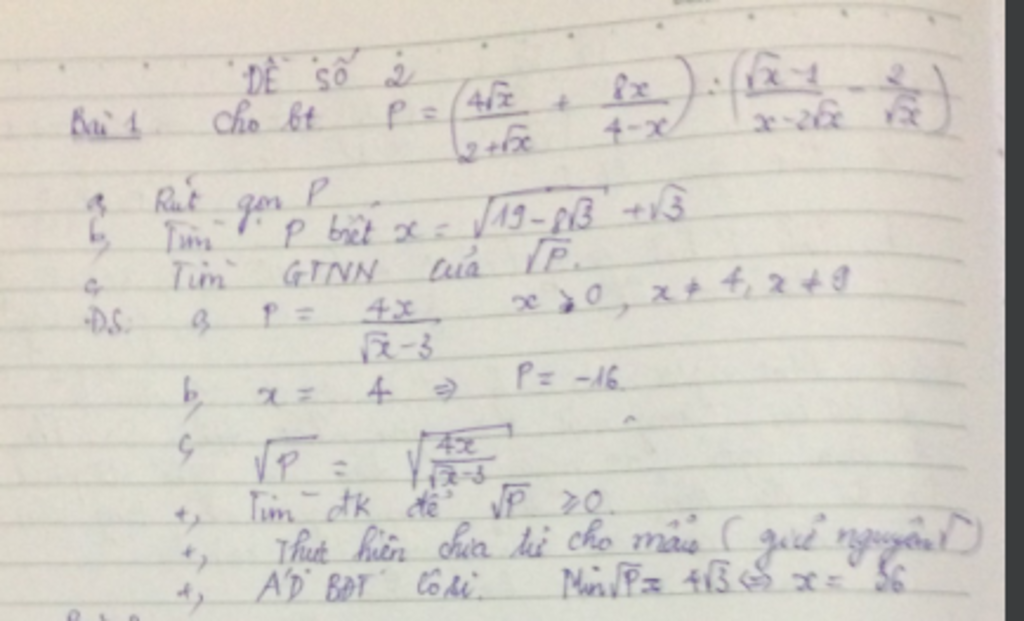 ĐỀ SỐ 2
Bài 1 Cho bt P = (4√x/(2+√x) + 8x/(4-x)) : ((√x-1)/(x-2√x) - 2/√x)
a, Rút gọn P
b, Tìm P biết x = √(19-8√3) + √3
c, Tìm GTNN của √P.
ĐS. a, P = 4x/(√x-3) x > 0, x ≠ 4, x ≠ 9
b, x = 4 ⇒ P = -16
c, √P = √(4x/(√x-3))
+, Tìm đk để √P ≥ 0.
+, Thực hiện chia tử cho mẫu (giữ nguyên √)
+, AD BĐT Côsi. Min√P = 4√3 ⇔ x = 36